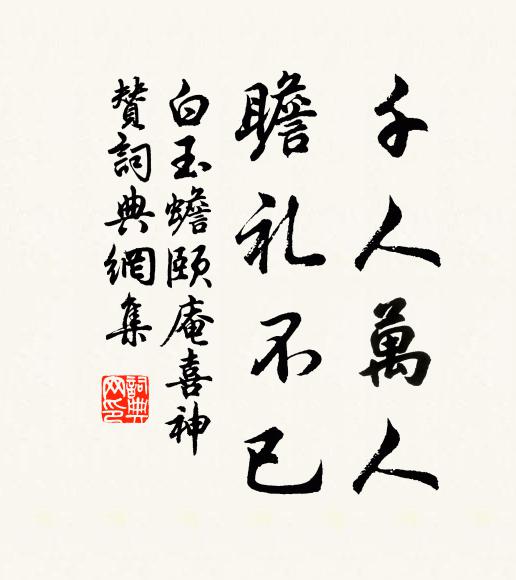 千人萬人
瞻礼不已
白玉蟾頤庵喜神
贊詞典網集
詞典網印